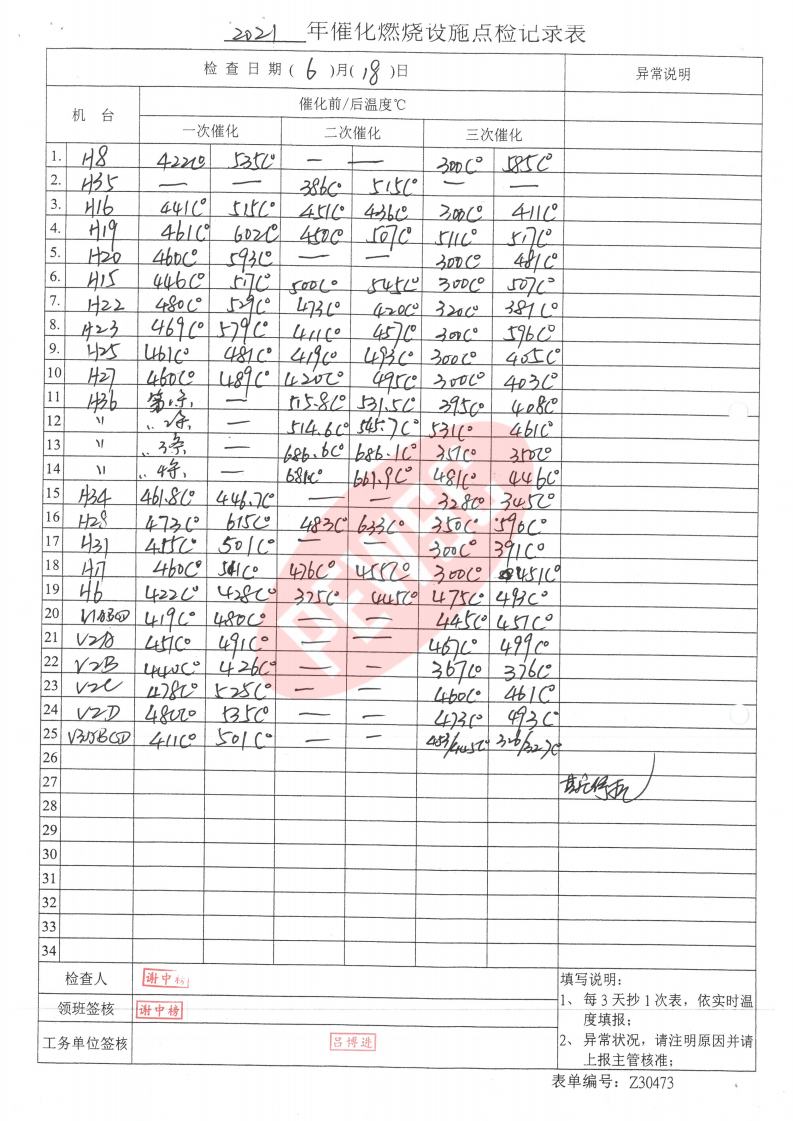 2021 年催化燃烧设施点检记录表
检查日期( 6 )月( 18 )日 异常说明
机 台 催化前/后温度℃
一次催化 二次催化 三次催化
1. H8 422C° 535C° — — 300C° 585C°
2. H35 — — 386C° 515C° — —
3. H16 441C° 515C° 451C° 436C° 300C° 411C°
4. H19 461C° 602C° 450C° 507C° 511C° 517C°
5. H20 460C° 593C° — — 300C° 481C°
6. H15 446C° 517C° 500C° 545C° 300C° 507C°
7. H22 480C° 529C° 473C° 420C° 320C° 381C°
8. H23 469C° 579C° 411C° 457C° 300C° 596C°
9. H25 461C° 481C° 419C° 493C° 300C° 405C°
10 H27 460C° 489C° 420C° 495C° 300C° 403C°
11 H36 第1条 — 515.8C° 531.5C° 395C° 408C°
12 〃 〃2条 — 514.6C° 545.7C° 531C° 461C°
13 〃 〃3条 — 686.6C° 686.1C° 357C° 350C°
14 〃 〃4条 — 681C° 661.9C° 481C° 446C°
15 H34 461.8C° 446.7C° — — 328C° 345C°
16 H28 473C° 615C° 483C° 633C° 350C° 596C°
17 H31 455C° 501C° — — 300C° 391C°
18 H7 460C° 541C° 476C° 455C° 300C° 451C°
19 H6 422C° 428C° 325C° 445C° 475C° 493C°
20 419C° 480C° — — 445C° 457C°
21 V2A 457C° 491C° — — 467C° 499C°
22 V2B 440C° 426C° — — 367C° 376C°
23 V2C 478C° 525C° — — 460C° 461C°
24 V2D 480C° 535C° — — 473C° 493C°
25 411C° 501C° — — 453/445C° 326/327C°
26
27 其它停机
28
29
30
31
32
33
34
检查人 谢中榜
领班签核 谢中榜
工务单位签核 吕博进
填写说明:
1、每3天抄1次表，依实时温
度填报;
2、异常状况，请注明原因并请
上报主管核准;
表单编号: Z30473